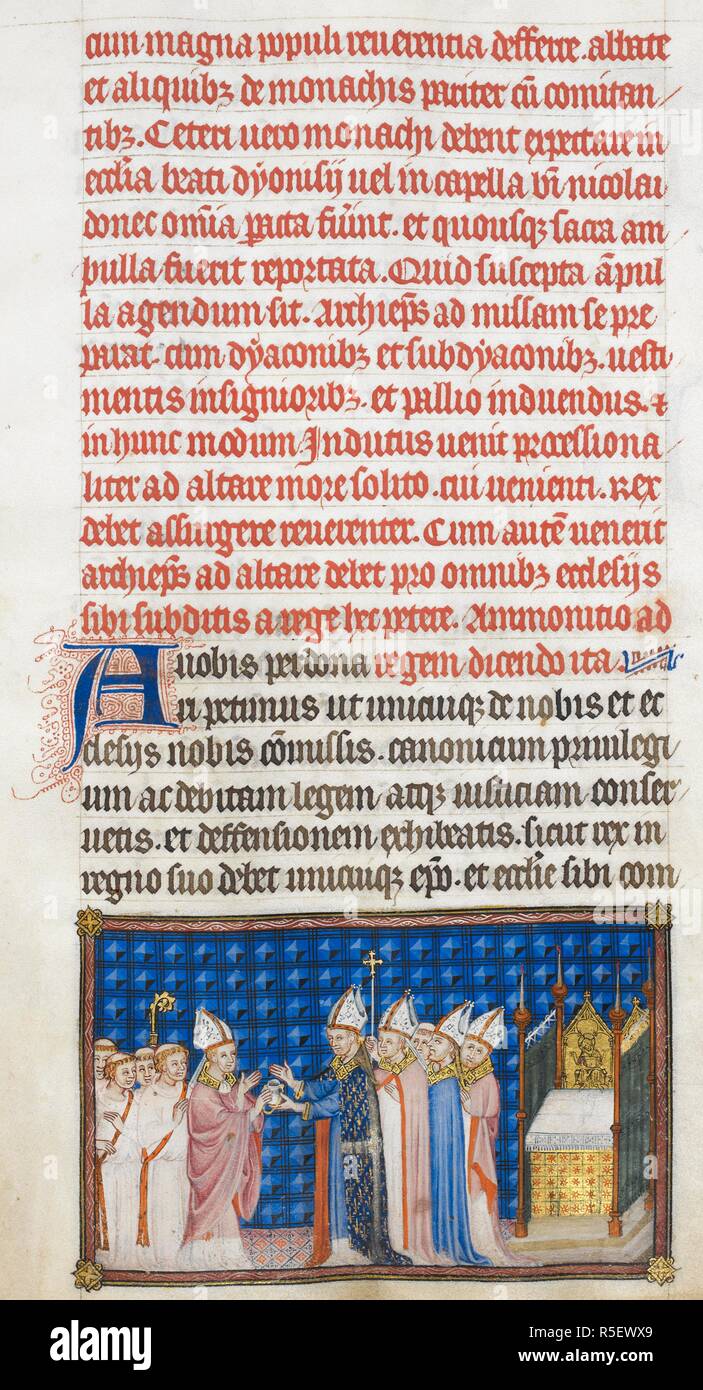 cum magna populi reuerencia defferre. abbate
et aliquibꝫ de monachis pariter cū comitan
tibꝫ. Ceteri uero monachi debent expectare in
ecclīa beati dẏonisij uel in capella bī nicolai
donec omīa pacta fiīnt. et quousqꝫ sacra am
pulla fuerit reportata. Quid suscepta āpul
la agendum sit. Archiep̄s ad missam se pre
parat. cum dẏaconibꝫ et subdẏaconibꝫ. uesti
mentis insignioribꝫ. et pallio induendus. ⁊
in hunc modum Indutus uenit processiona
liter ad altare more solito. cui uenienti. Rex
debet assurgere reuerenter. Cum autē uenerit
archiep̄s ad altare debet pro omnibꝫ ecclesijs
sibi subditis a rege hec petere. Ammonitio ad
A uobis perdona regem dicendo ita.
ri petimus ut unicuiqꝫ de nobis et ec
clesijs nobis cōmissis. canonicum priuilegi
um ac debitam legem atqꝫ iusticiam conser
uetis. et deffensionem exhibeatis. sicut rex in
regno suo debet unicuiqꝫ ep̄o. et ecclīe sibi com
alamy
Image ID: R5EWX9
www.alamy.com